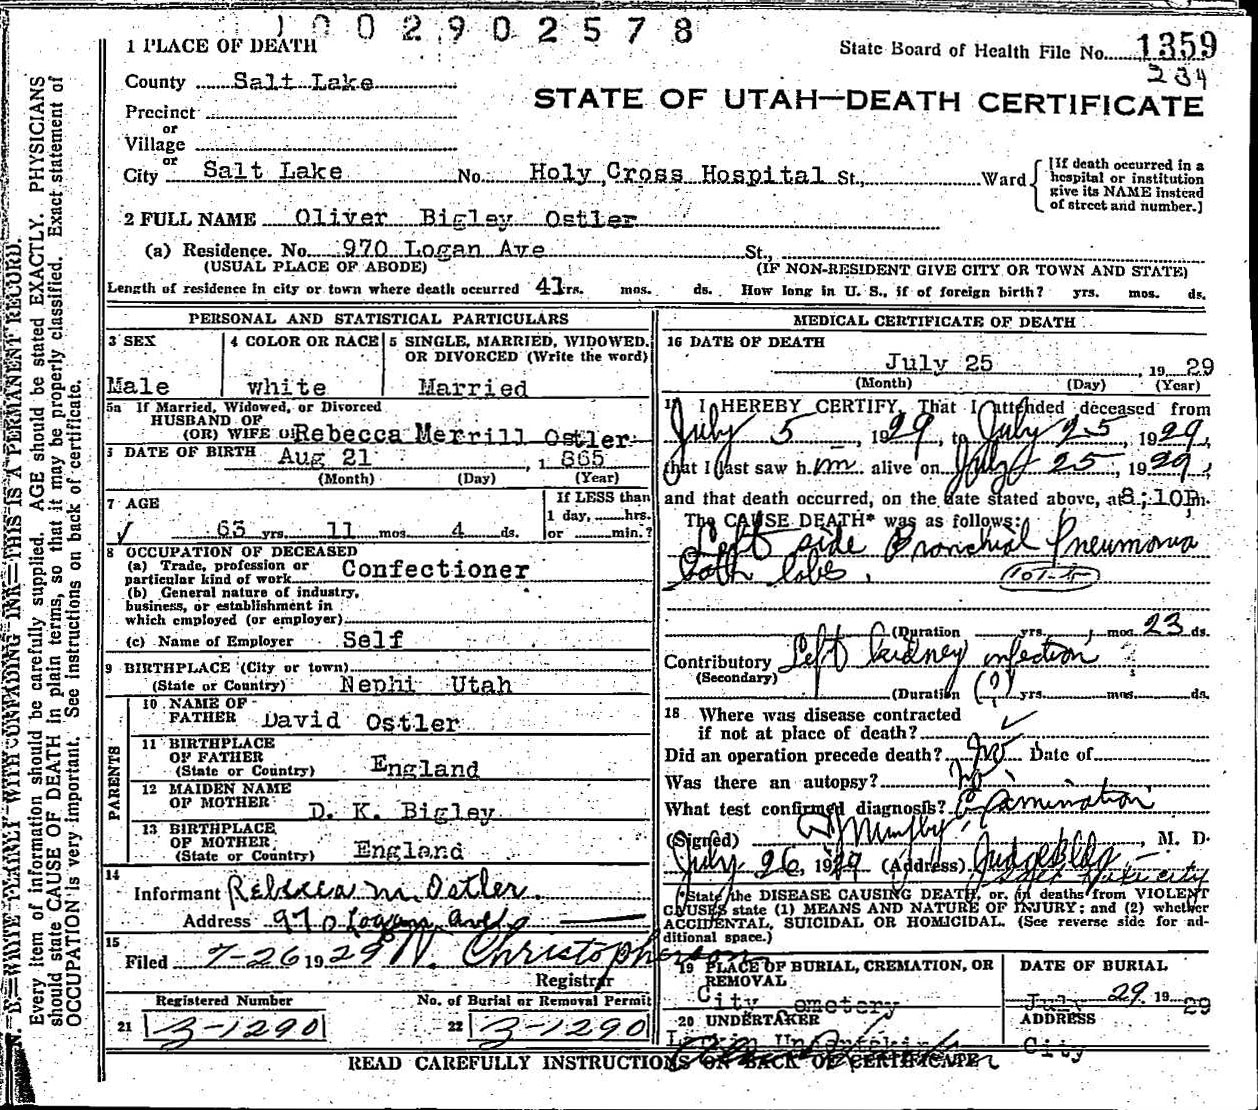 1002902578
1 PLACE OF DEATH
State Board of Health File No. 1359
234
County Salt Lake
STATE OF UTAH—DEATH CERTIFICATE
Precinct
or
Village
or
City Salt Lake No. Holy Cross Hospital St., Ward
[If death occurred in a hospital or institution give its NAME instead of street and number.]
2 FULL NAME Oliver Bigley Ostler
(a) Residence. No. 970 Logan Ave St.,
(USUAL PLACE OF ABODE) (IF NON-RESIDENT GIVE CITY OR TOWN AND STATE)
Length of residence in city or town where death occurred 41 yrs. mos. ds. How long in U. S., if of foreign birth? yrs. mos. ds.
PERSONAL AND STATISTICAL PARTICULARS
3 SEX
Male
4 COLOR OR RACE
white
5 SINGLE, MARRIED, WIDOWED, OR DIVORCED (Write the word)
Married
5a If Married, Widowed, or Divorced
HUSBAND OF
(OR) WIFE OF Rebecca Merrill Ostler
DATE OF BIRTH Aug 21, 1865
(Month) (Day) (Year)
7 AGE
63 yrs. 11 mos. 4 ds.
If LESS than
1 day, hrs.
or min.?
8 OCCUPATION OF DECEASED
(a) Trade, profession or particular kind of work Confectioner
(b) General nature of industry, business, or establishment in which employed (or employer)
(c) Name of Employer Self
9 BIRTHPLACE (City or town)
(State or Country) Nephi Utah
PARENTS
10 NAME OF FATHER David Ostler
11 BIRTHPLACE OF FATHER
(State or Country) England
12 MAIDEN NAME OF MOTHER D. K. Bigley
13 BIRTHPLACE OF MOTHER
(State or Country) England
14
Informant Rebecca M. Ostler.
Address 970 Logan Ave
15
Filed 7-26 1929 W. Christopherson
Registrar
Registered Number
No. of Burial or Removal Permit
21 3-1290
22 3-1290
MEDICAL CERTIFICATE OF DEATH
16 DATE OF DEATH
July 25, 1929
(Month) (Day) (Year)
I HEREBY CERTIFY, That I attended deceased from
July 5, 1929, to July 25, 1929,
that I last saw h im alive on July 25, 1929,
and that death occurred, on the date stated above, at 8:10P m.
The CAUSE DEATH* was as follows:
Left side Bronchial Pneumonia
Both lobes.
(Duration yrs., mos. 23 ds.
Contributory Left kidney infection
(Secondary)
(Duration (?) yrs. mos. ds.
18 Where was disease contracted
if not at place of death?
Did an operation precede death? no Date of
Was there an autopsy? no
What test confirmed diagnosis? Examination
(Signed) , M. D.
July 26, 1929 (Address) Judge Bldg
Salt Lake City
*State the DISEASE CAUSING DEATH, or, in deaths from VIOLENT CAUSES state (1) MEANS AND NATURE OF INJURY; and (2) whether ACCIDENTAL, SUICIDAL OR HOMICIDAL. (See reverse side for additional space.)
19 PLACE OF BURIAL, CREMATION, OR REMOVAL
City Cemetery
DATE OF BURIAL
July 29, 1929
20 UNDERTAKER
ADDRESS
City
READ CAREFULLY INSTRUCTIONS ON BACK OF CERTIFICATE
N. B.—WRITE PLAINLY WITH UNFADING INK—THIS IS A PERMANENT RECORD.
Every item of information should be carefully supplied. AGE should be stated EXACTLY. PHYSICIANS
should state CAUSE OF DEATH in plain terms, so that it may be properly classified. Exact statement of
OCCUPATION is very important. See instructions on back of certificate.